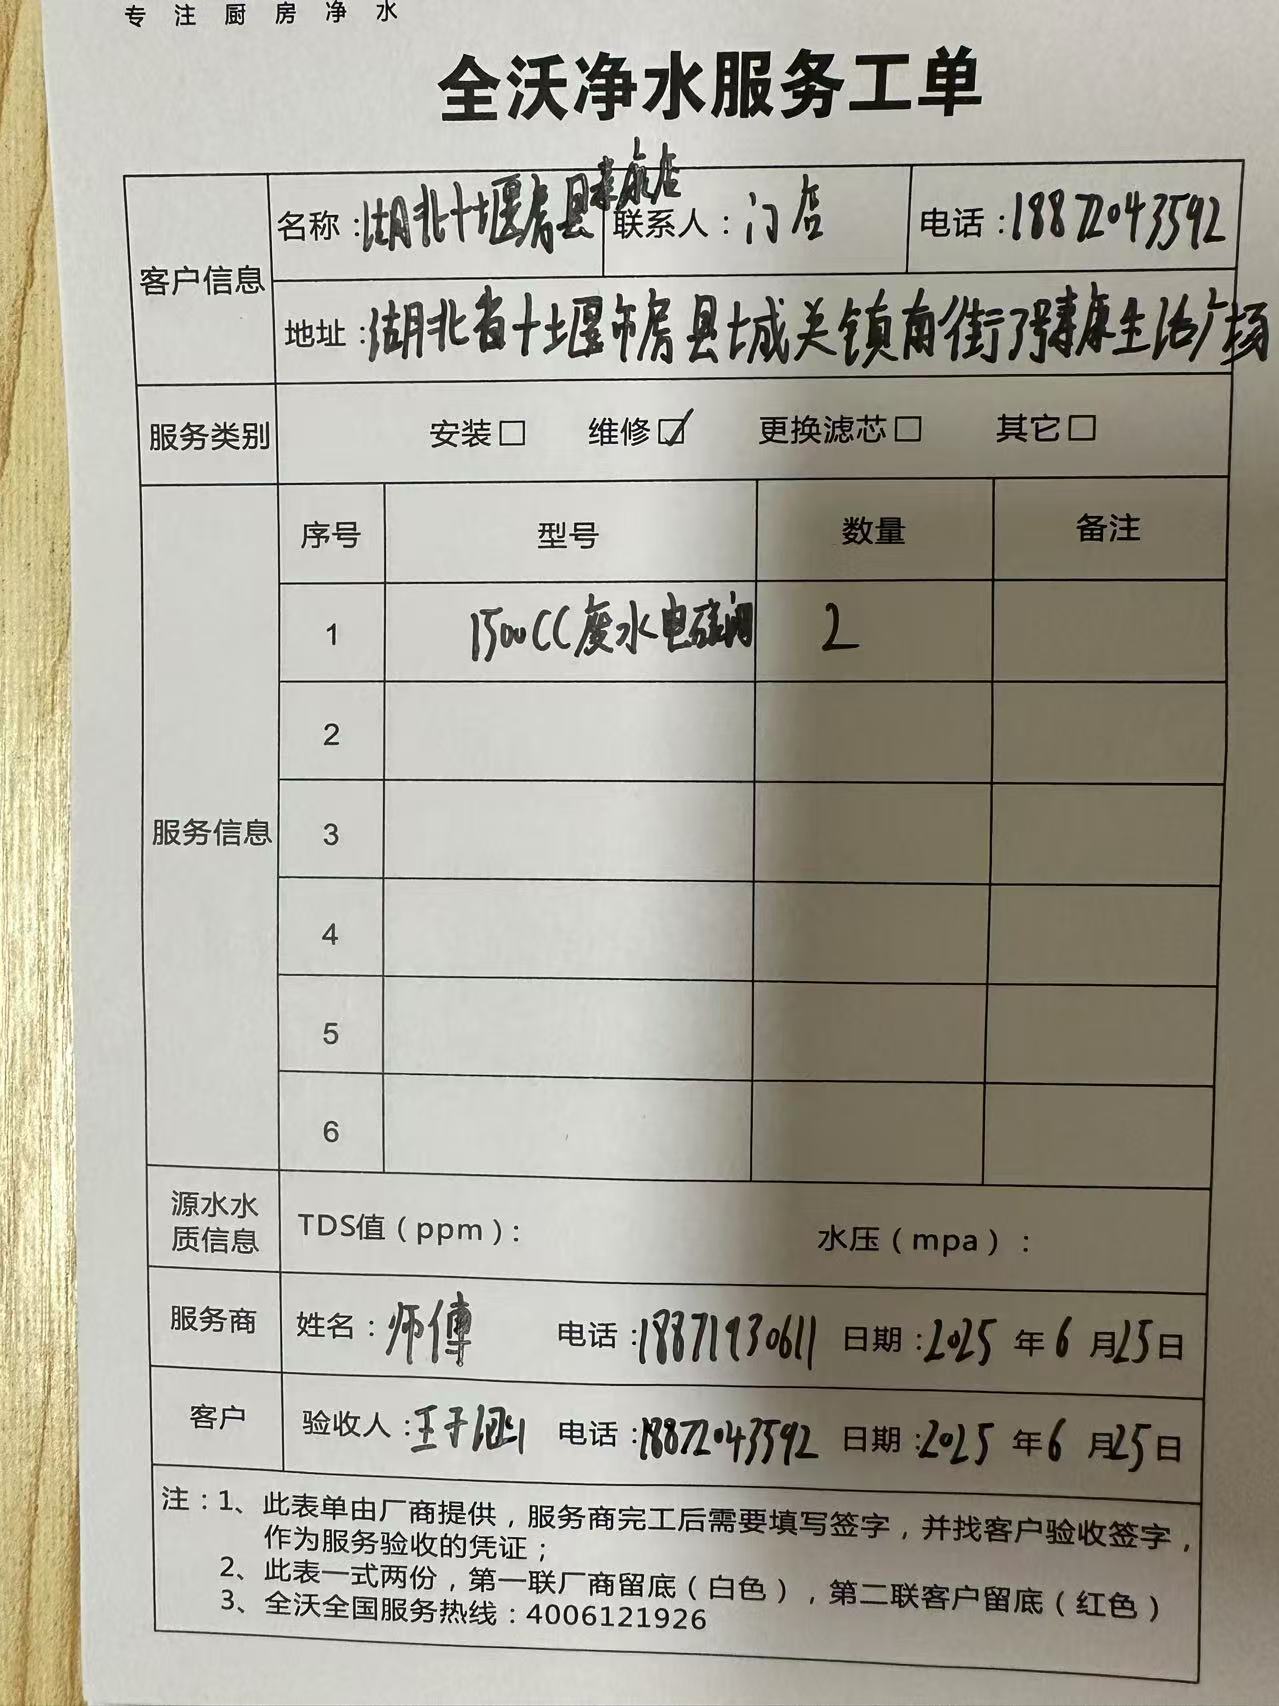 专注厨房净水
全沃净水服务工单
客户信息
名称：湖北十堰房县寿康店 联系人：门店 电话：18872043592
地址：湖北省十堰市房县城关镇南街7号寿康生活广场
服务类别 安装□ 维修☑ 更换滤芯□ 其它□
服务信息
序号 型号 数量 备注
1 1500CC废水电磁阀 2
2
3
4
5
6
源水水质信息 TDS值（ppm）： 水压（mpa）：
服务商 姓名：师傅 电话：18871930611 日期：2025年6月25日
客户 验收人：王于 电话：18872043592 日期：2025年6月25日
注：1、此表单由厂商提供，服务商完工后需要填写签字，并找客户验收签字，
作为服务验收的凭证；
2、此表一式两份，第一联厂商留底（白色），第二联客户留底（红色）
3、全沃全国服务热线：4006121926